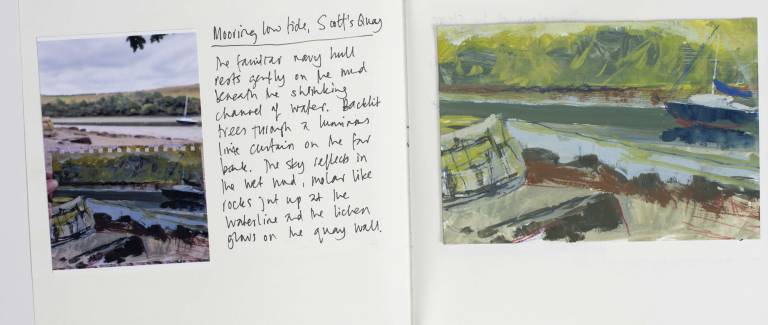 Mooring low tide, Scott's Quay
The familiar navy hull
rests gently on the mud
beneath the shrinking
channel of water. Backlit
trees through a luminous
lime curtain on the far
bank. The sky reflects in
the wet mud, molar like
rocks jut up at the
waterline and the lichen
glows on the quay wall.